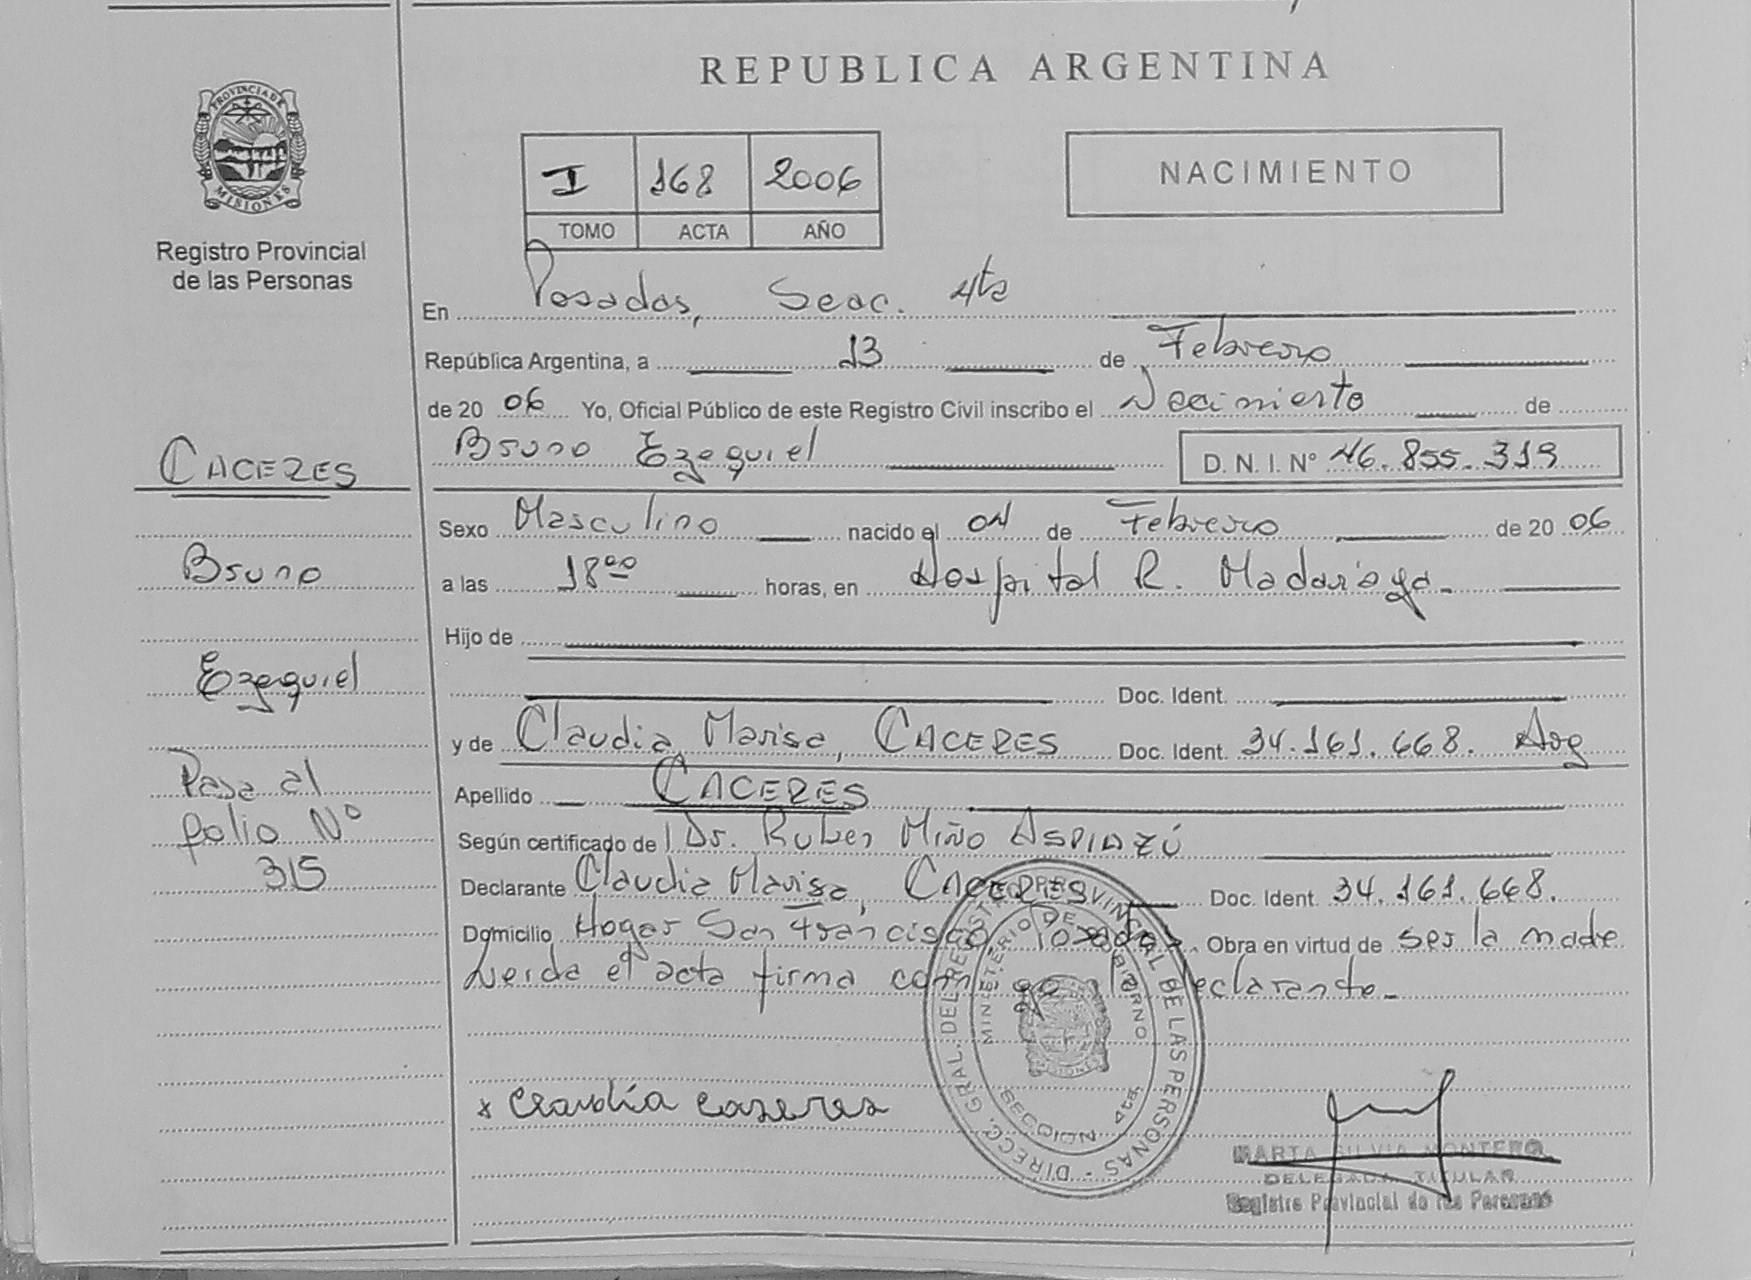 REPUBLICA ARGENTINA
PROVINCIA DE MISIONES
Registro Provincial
de las Personas
I 168 2006
TOMO ACTA AÑO
NACIMIENTO
En Posadas, Secc. 4ta
República Argentina, a 13 de Febrero
de 20 06 Yo, Oficial Público de este Registro Civil inscribo el Nacimiento de
Bruno Ezequiel D. N. I. Nº 46.855.319
CACERES
Bruno
Ezequiel
Pasa al
folio Nº
315
Sexo Masculino nacido el 04 de Febrero de 20 06
a las 18ºº horas, en Hospital R. Madariaga.
Hijo de
Doc. Ident.
y de Claudia Marisa, CACERES Doc. Ident. 34.161.668. Arg
Apellido CACERES
Según certificado de Dr. Ruben Miño ASPIAZÚ
Declarante Claudia Marisa, CACERES Doc. Ident. 34.161.668.
Domicilio Hogar San Francisco, Posadas. Obra en virtud de ser la madre
Leida el acta firma conmigo la declarante.
DIRECC. GRAL. DEL REGISTRO PROVINCIAL DE LAS PERSONAS
MINISTERIO DE GOBIERNO
MISIONES
SECCION 4ta.
x Claudia Caseres
MARTA SILVIA MONTERO
DELEGADA TITULAR
Registro Provincial de las Personas